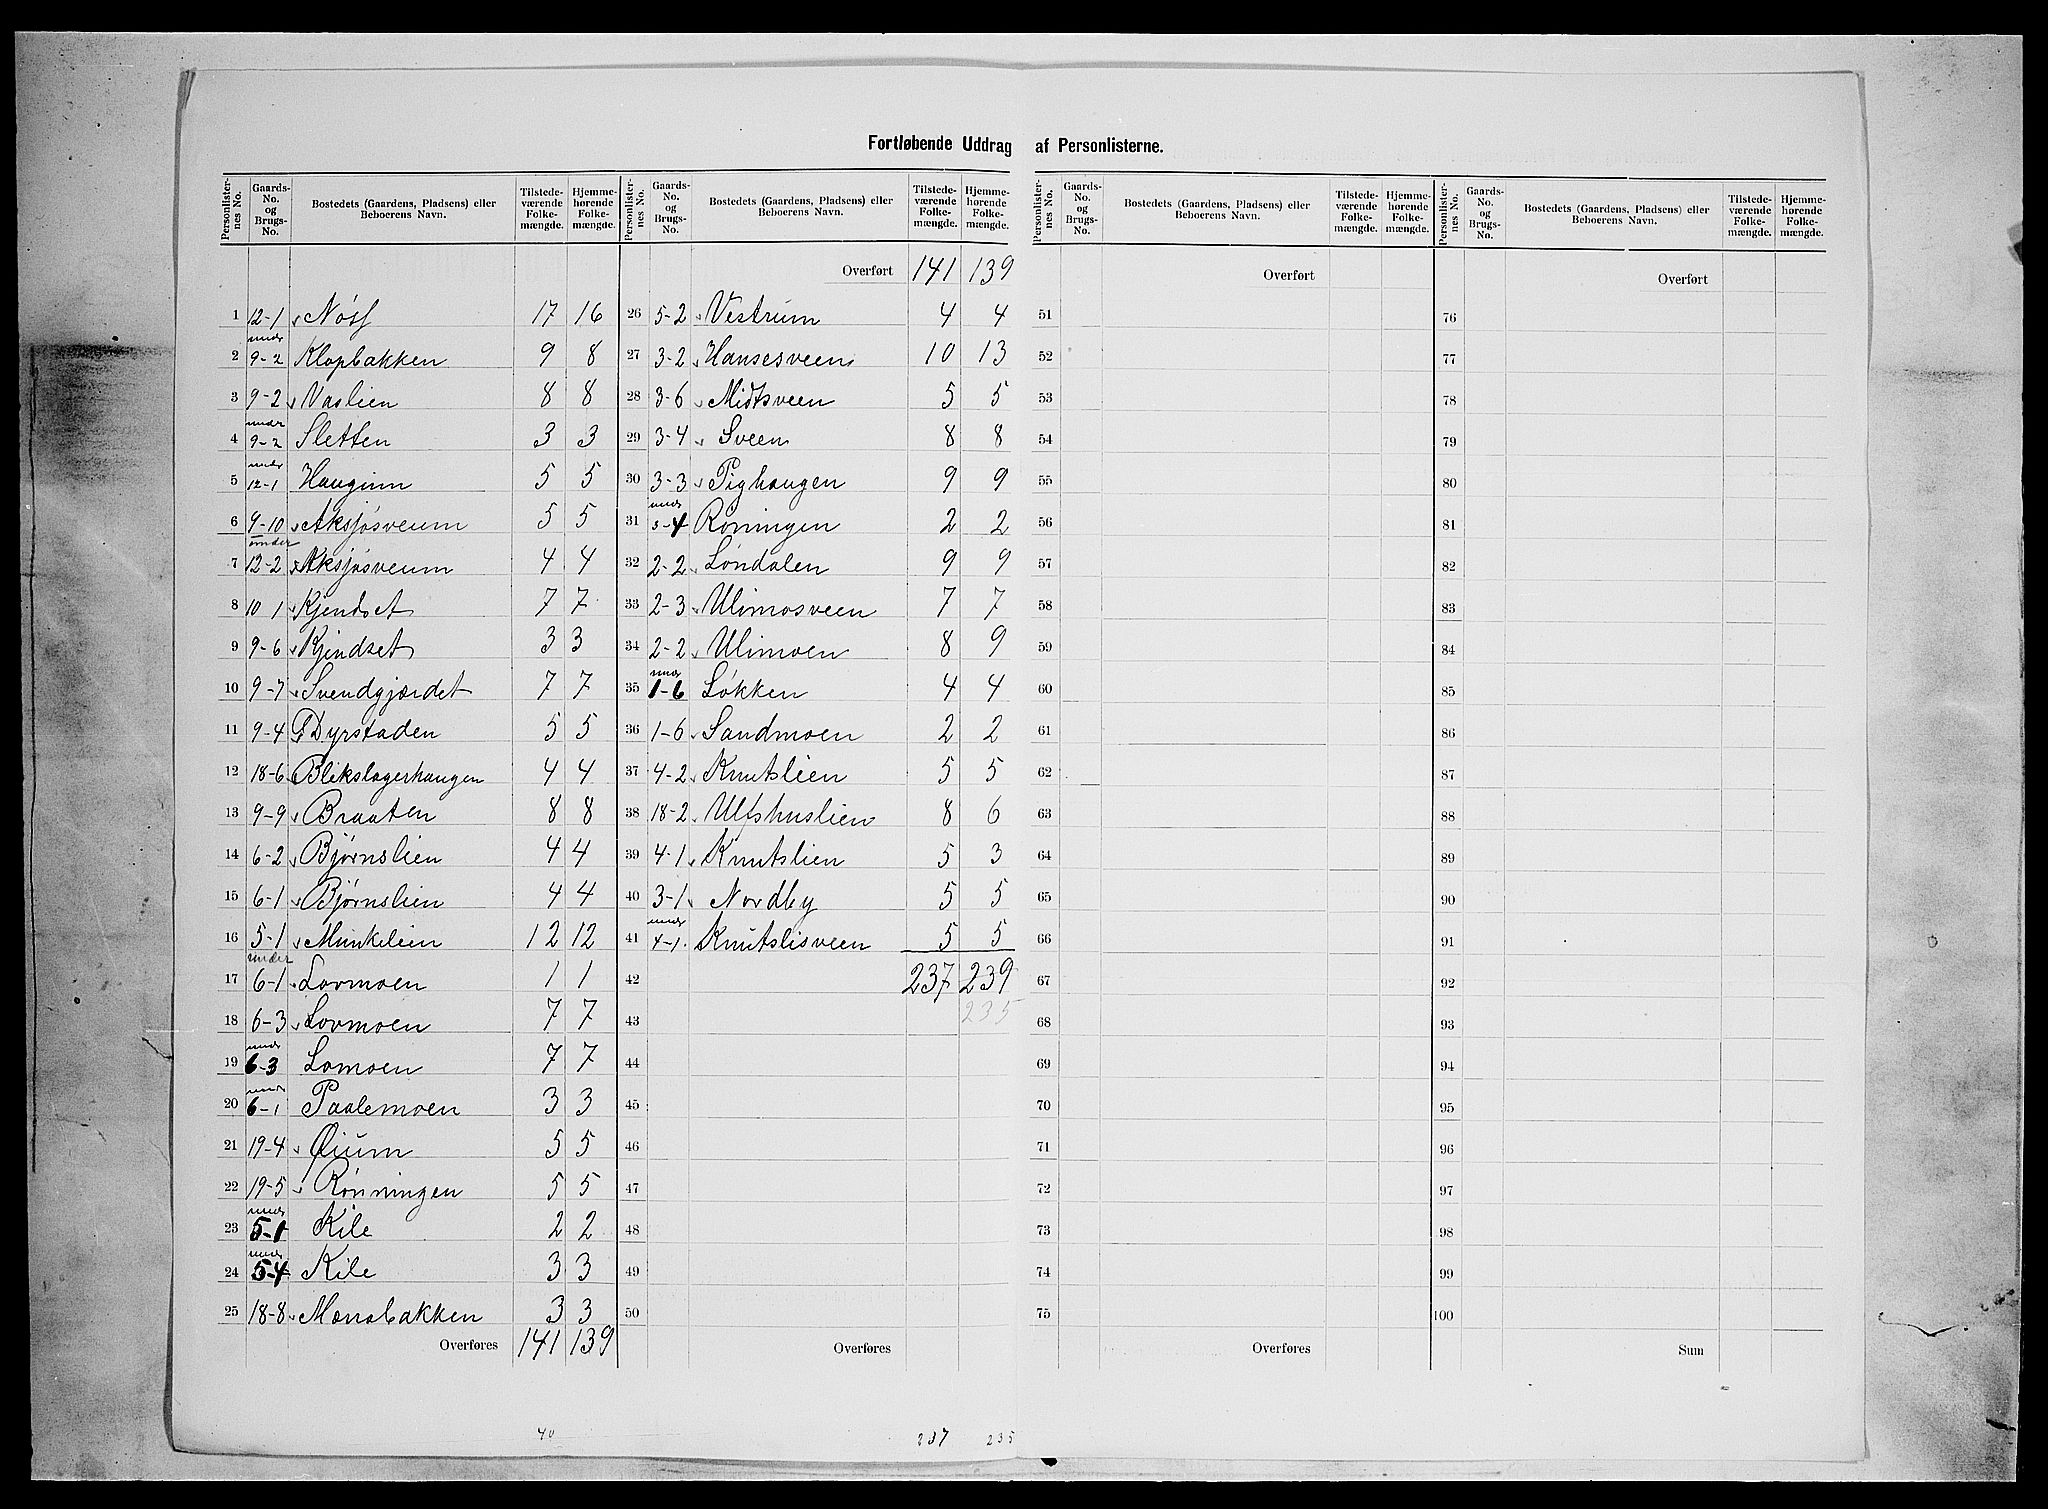 Fortløbende Uddrag af Personlisterne.
Personlister-nes No. Gaards-No. og Brugs-No. Bostedets (Gaardens, Pladsens) eller Beboerens Navn. Tilstede-værende Folke-mængde. Hjemme-hørende Folke-mængde.
1 12-1 Nøss 17 16
2 under 9-2 Klopbakken 9 8
3 9-2 Vaslien 8 8
4 under 9-2 Sletten 3 3
5 under 12-1 Haugum 5 5
6 9-10 Aksjøsveum 5 5
7 under 12-2 Aksjøsveum 4 4
8 10 1 Kjendset 7 7
9 9-6 Kjendset 3 3
10 9-7 Svendgjærdet 7 7
11 9-4 Dyrstaden 5 5
12 18-6 Blikslagerhaugen 4 4
13 9-9 Braaten 8 8
14 6-2 Bjørnslien 4 4
15 6-1 Bjørnslien 4 4
16 5-1 Munkelien 12 12
17 under 6-1 Lovmoen 1 1
18 6-3 Lovmoen 7 7
19 under 6-3 Lomoen 7 7
20 under 6-1 Paalemoen 3 3
21 19-4 Øium 5 5
22 19-5 Rønningen 5 5
23 under 5-1 Kile 2 2
24 under 5-4 Kile 3 3
25 18-8 Mænabakken 3 3
Overføres 141 139
40
Personlister-nes No. Gaards-No. og Brugs-No. Bostedets (Gaardens, Pladsens) eller Beboerens Navn. Tilstede-værende Folke-mængde. Hjemme-hørende Folke-mængde.
Overført 141 139
26 5-2 Vestrum 4 4
27 3-2 Hansesveen 10 13
28 3-6 Midtsveen 5 5
29 3-4 Sveen 8 8
30 3-3 Pighaugen 9 9
31 under 3-4 Roningen 2 2
32 2-2 Løndalen 9 9
33 2-3 Ulimosveen 7 7
34 2-2 Ulimoen 8 9
35 under 1-6 Løkken 4 4
36 1-6 Sandmoen 2 2
37 4-2 Knutslien 5 5
38 18-2 Ulfshuslien 8 6
39 4-1 Knutslien 5 3
40 3-1 Nordby 5 5
41 under 4-1 Knutslisveen 5 5
42 237 239
43 235
44
45
46
47
48
49
50
Overføres
237 235
Personlister-nes No. Gaards-No. og Brugs-No. Bostedets (Gaardens, Pladsens) eller Beboerens Navn. Tilstede-værende Folke-mængde. Hjemme-hørende Folke-mængde.
Overført
51
52
53
54
55
56
57
58
59
60
61
62
63
64
65
66
67
68
69
70
71
72
73
74
75
Overføres
Personlister-nes No. Gaards-No. og Brugs-No. Bostedets (Gaardens, Pladsens) eller Beboerens Navn. Tilstede-værende Folke-mængde. Hjemme-hørende Folke-mængde.
Overført
76
77
78
79
80
81
82
83
84
85
86
87
88
89
90
91
92
93
94
95
96
97
98
99
100
Sum